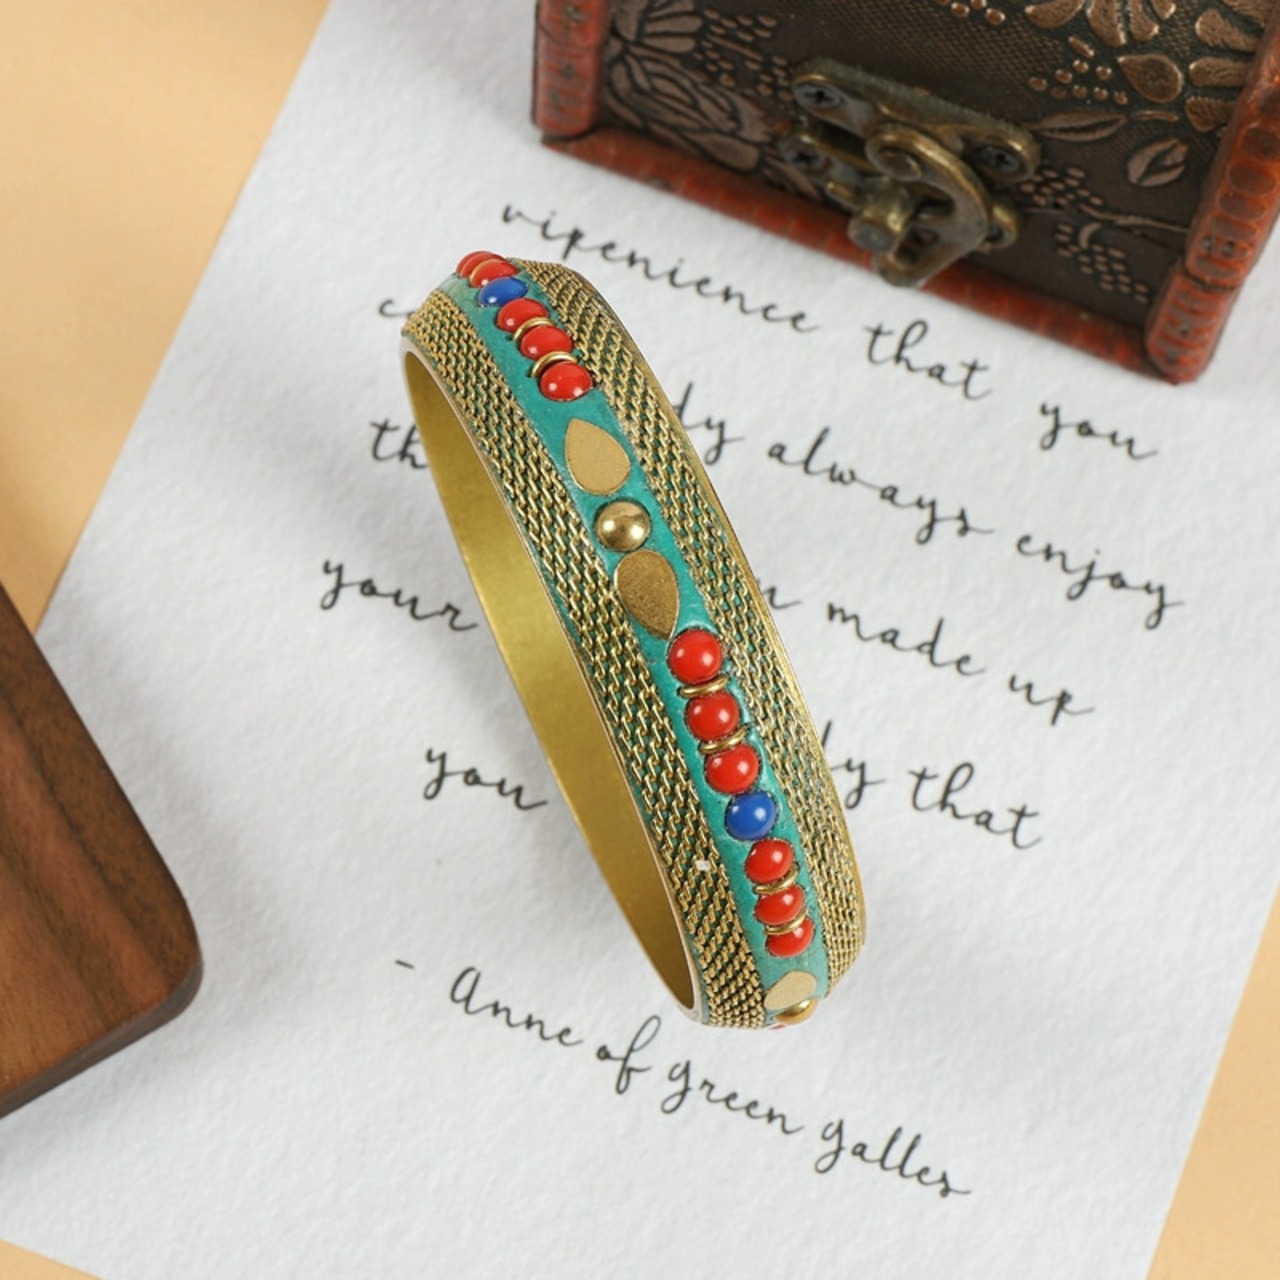 vipenience that you
th dy always enjoy
your made up
you y that
- Anne of green galles